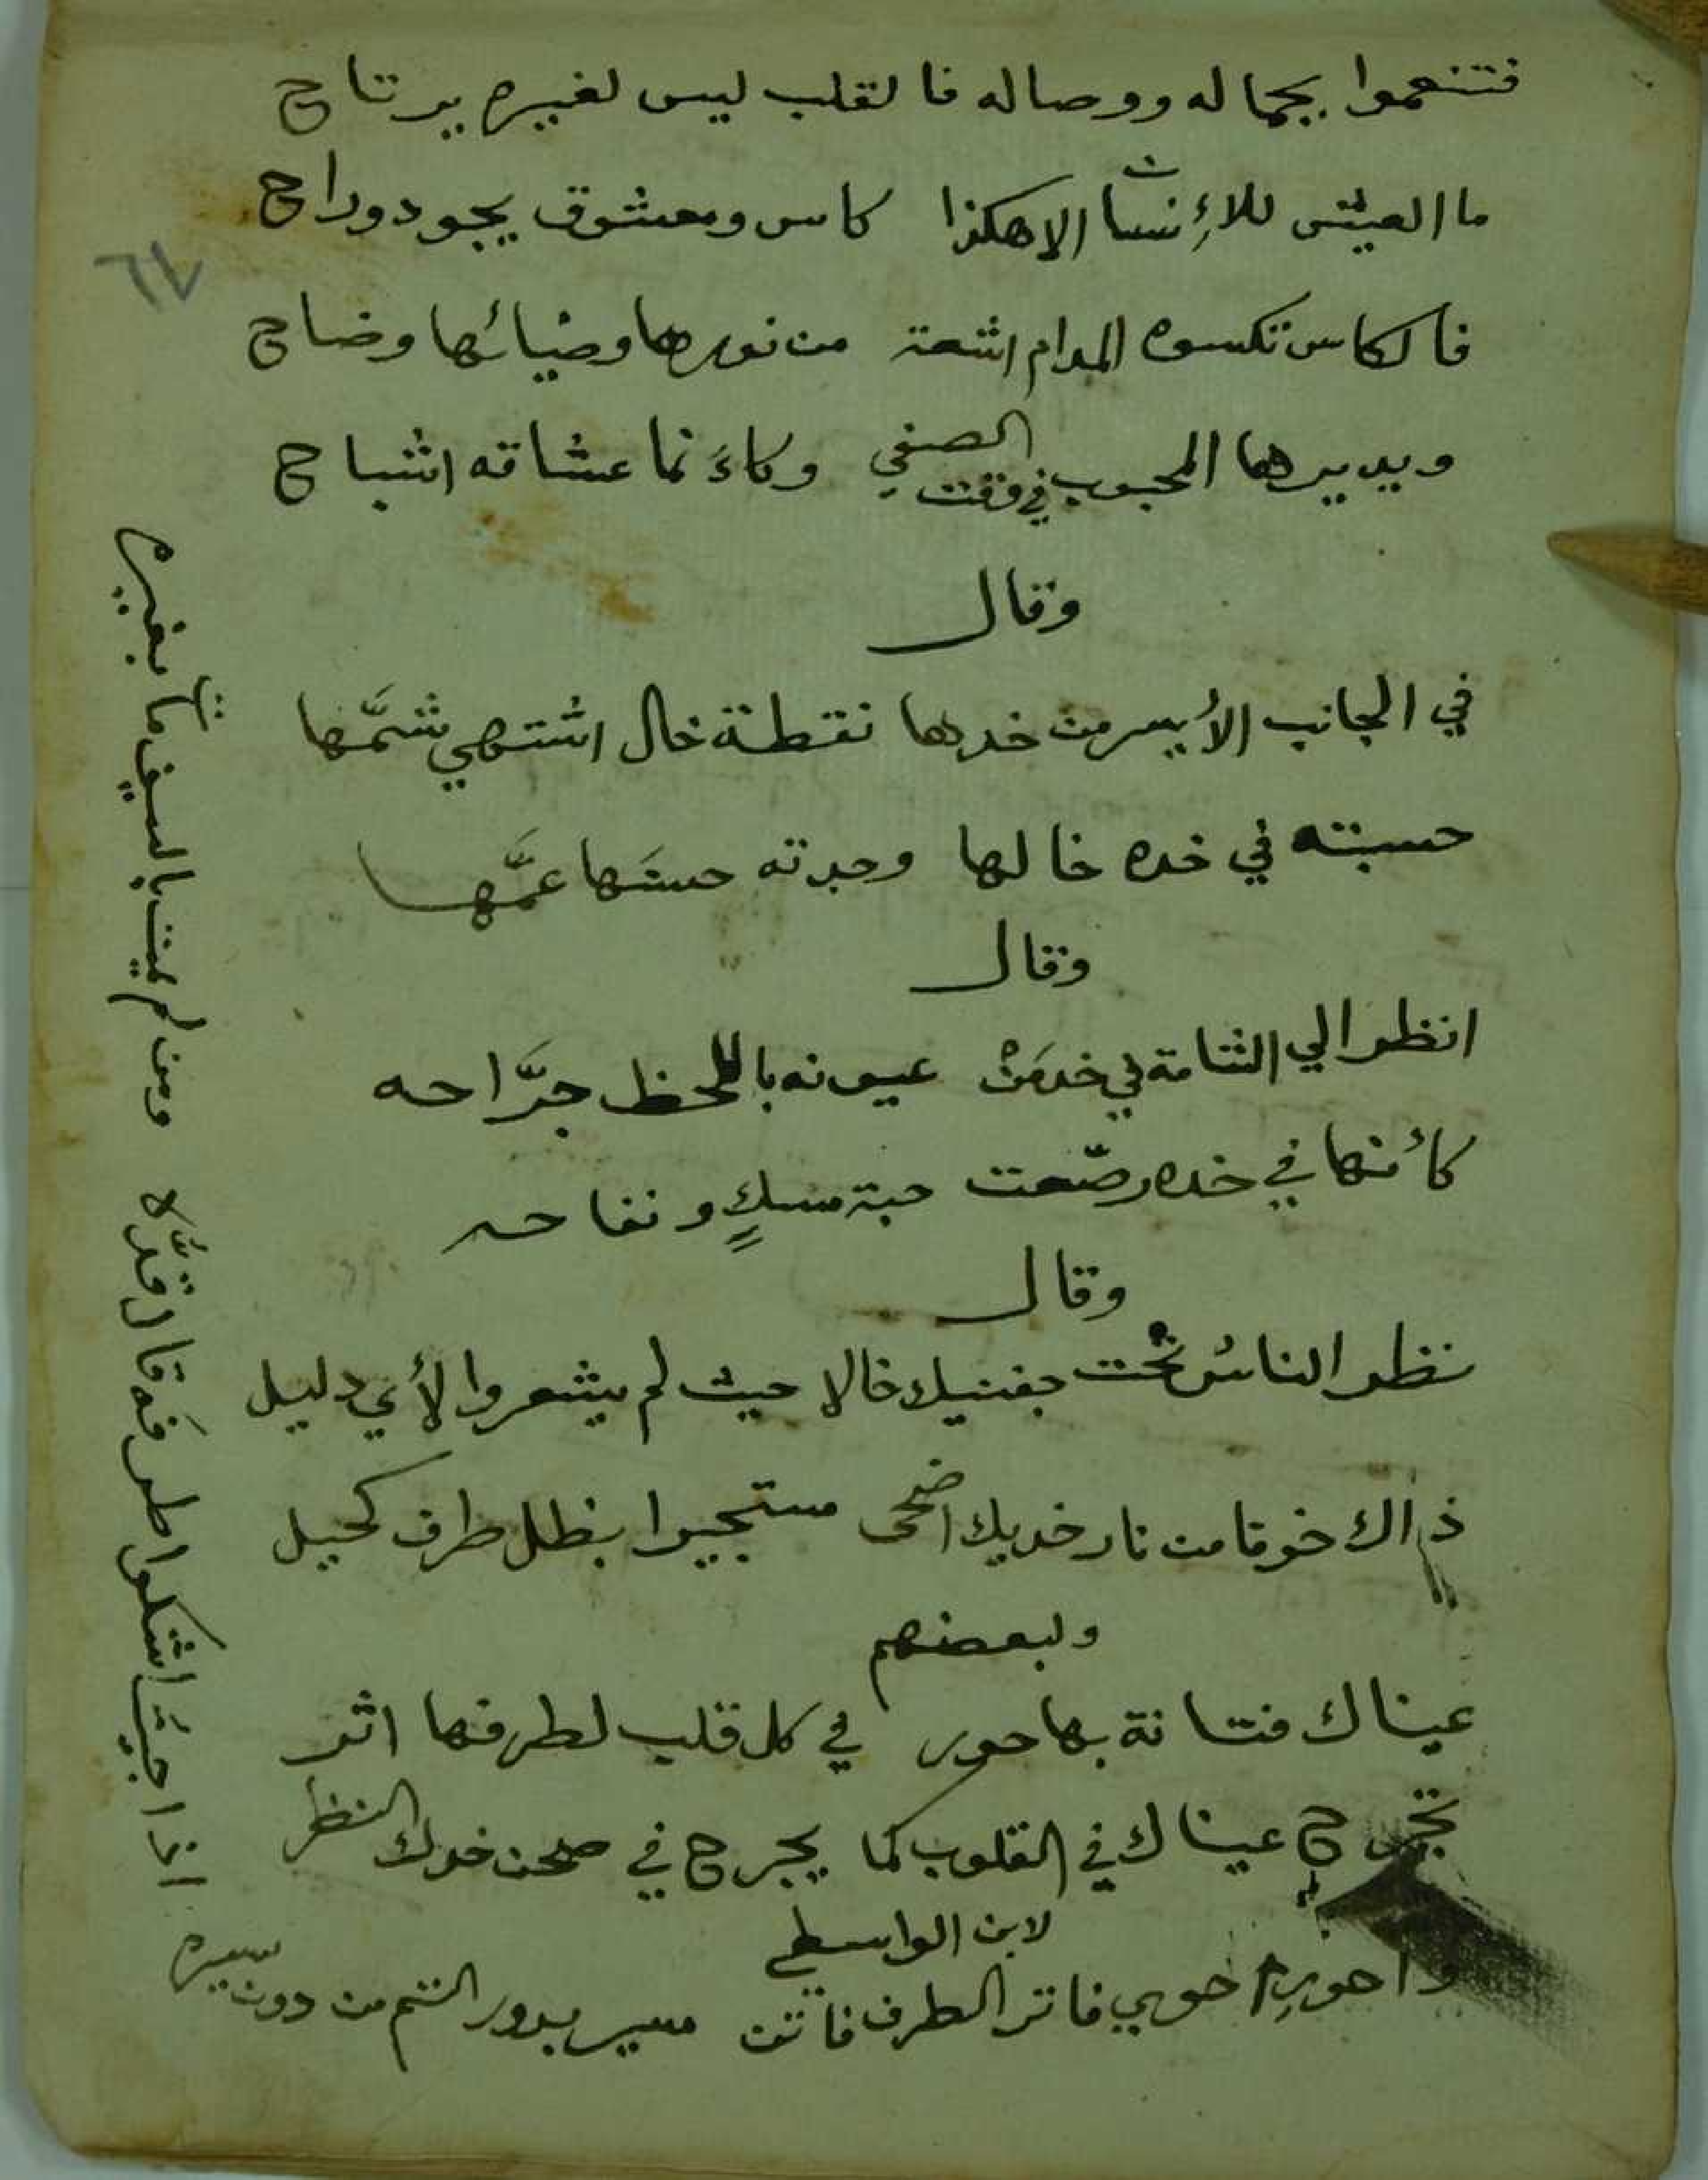 فتنعموا بجماله ووصاله فالقلب ليس لغيره يرتاح
ما العيش للإنسان الا هكذا كاس ومعشوق يجود وراح
٦٧
فالكاس تكسوه المدام اشعة من نورها وضيائها وضاح
ويديرها المحبوب في وقت الصفي وكاءنما عشاقه اشباح
وقال
في الجانب الأيسر من خدها نقطة خال اشتهي شمَّها
حسبته في خده خالها وجدته حسنها عمَّها
وقال
انظر الي الشامة في خد مَنْ عيونه باللحظ جرَّاحه
كأنها في خده رصّعت حبة مسكٍ و تفاحه
وقال
نظر الناسُ تحت جفنيك خالا حيث لم يشعروا لأي دليل
ذاك خوفا من نار خديك اضحى مستجيرا بظل طرف كحيل
ولبعضهم
عيناك فتانة بها حور في كل قلب لطرفها اثر
تجرح عيناك في القلوب كما يجرح في صحن خدك النظر
لابن الواسطي
واحور احوي فاتر الطرف فاتن مسير بدور التم من دون سيره
اذا جيت اشكوا طرفه قال قدُّه ومن لم يمت بالسيف مات بغيره